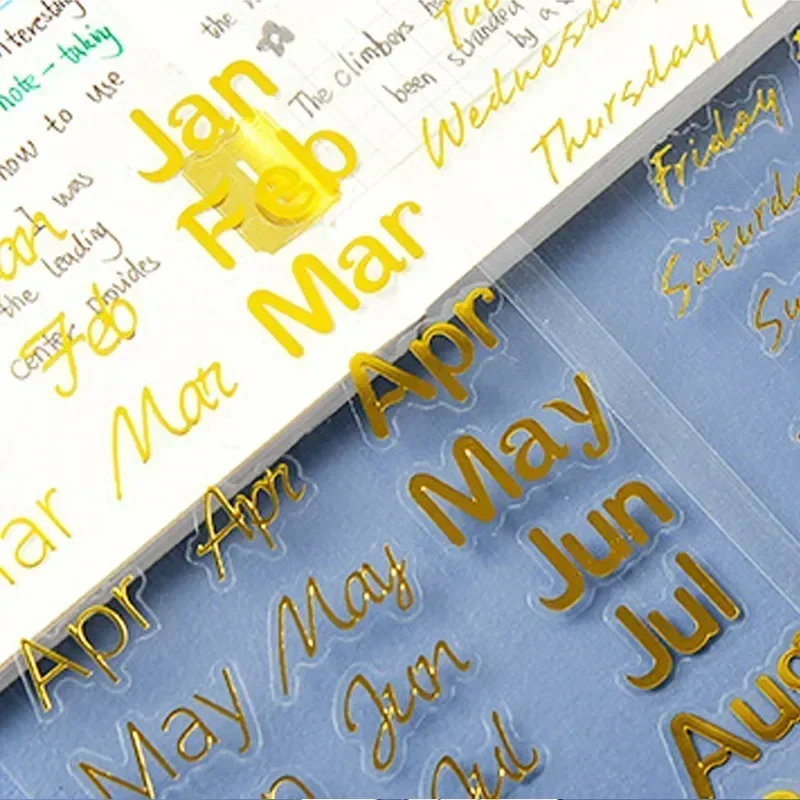 nteresting
note-taking
how to use
was
the leading
center provides
the
The climbers ha
been stranded
by a
Jan
Feb
Mar
Apr
May
Jun
Jul
Aug
an
Feb
Mar
Apr
May
Jun
Jul
ar
Apr
May
n
Tue
Wednesda
Thursday
Friday
Saturda
Su